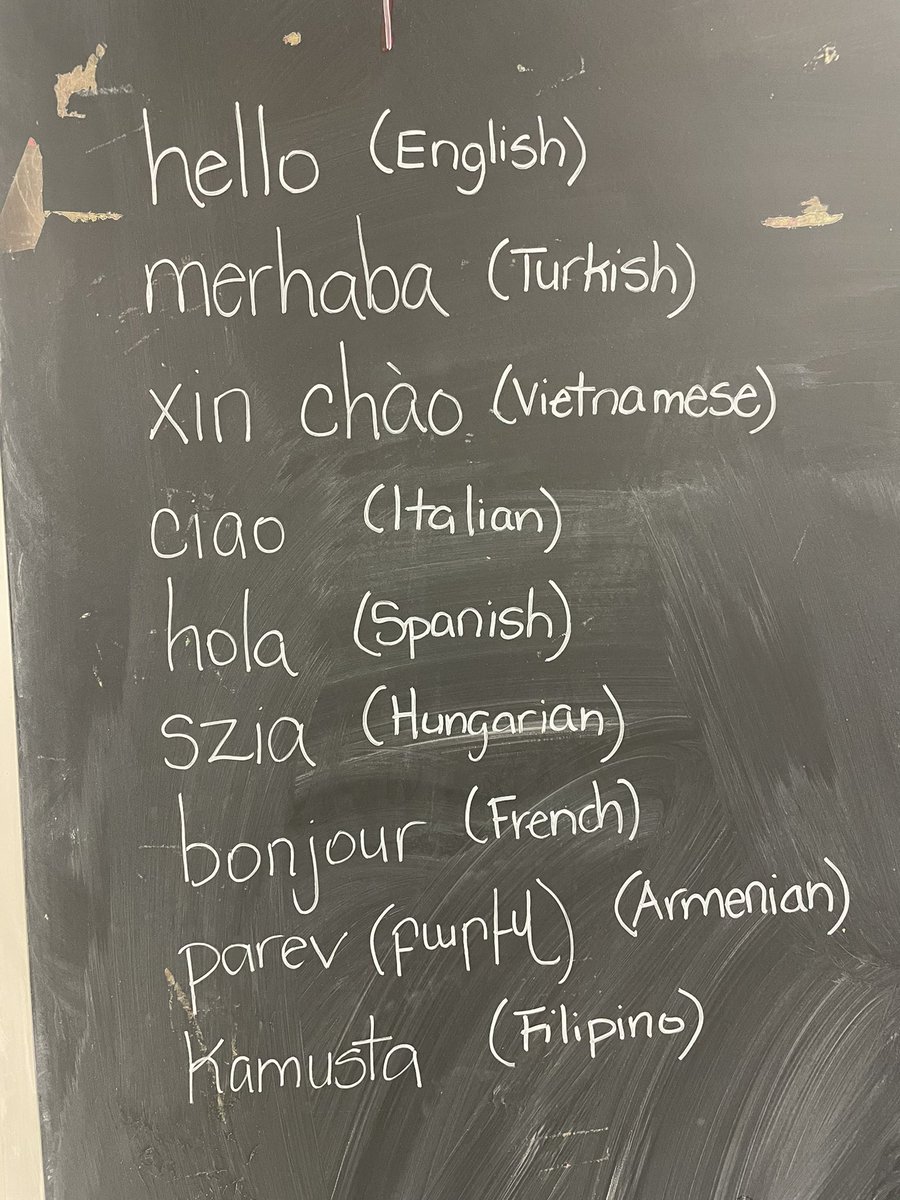 hello (English)
merhaba (Turkish)
xin chào (Vietnamese)
ciao (Italian)
hola (Spanish)
szia (Hungarian)
bonjour (French)
parev (բարեւ) (Armenian)
Kamusta (Filipino)